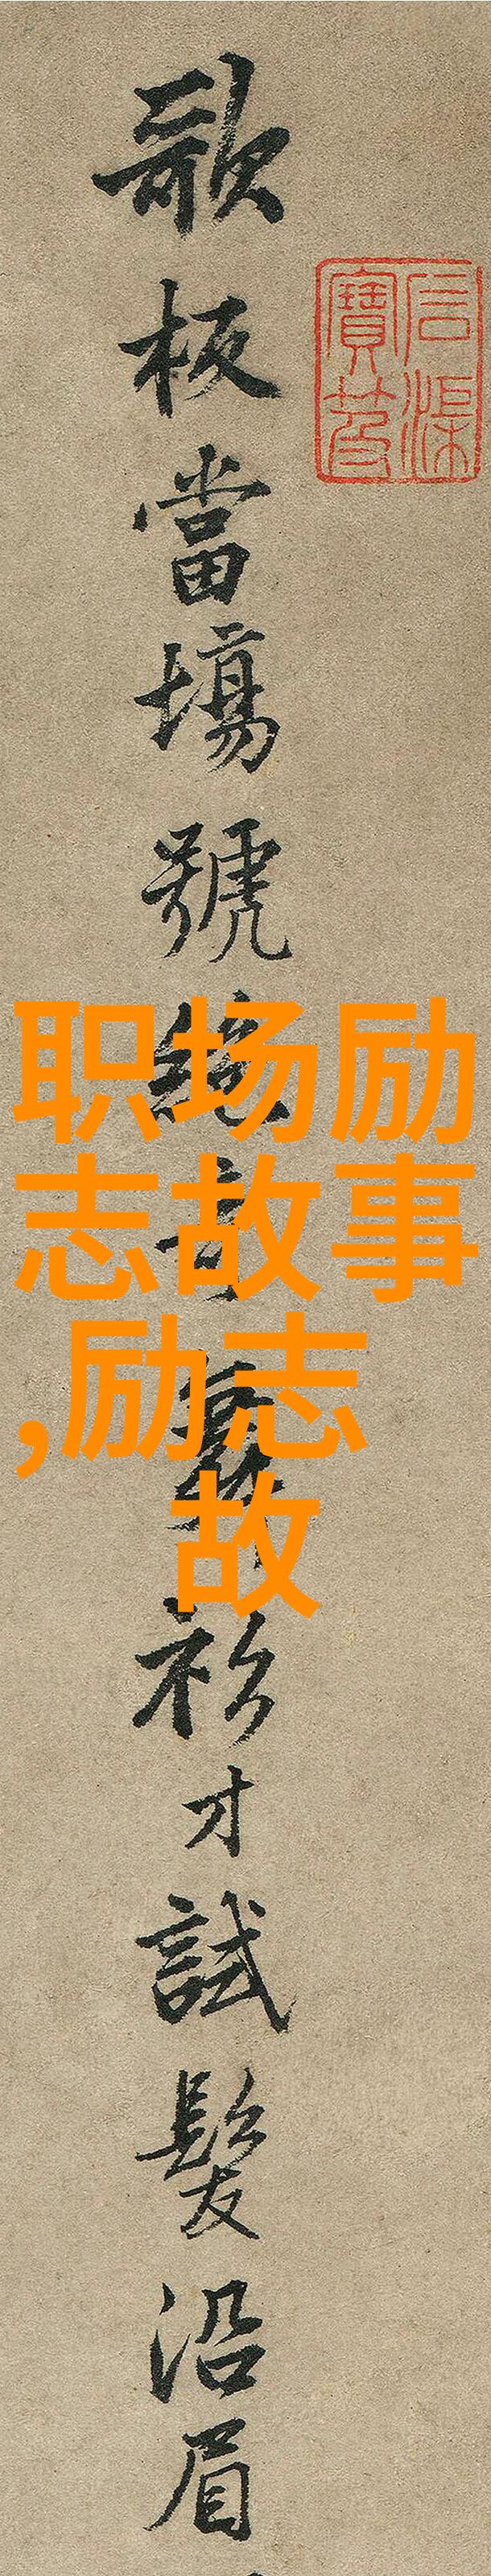 石渠
寶笈
歌板當場號絕衫才試髮沿眉
职场励
志故事
,励志
故